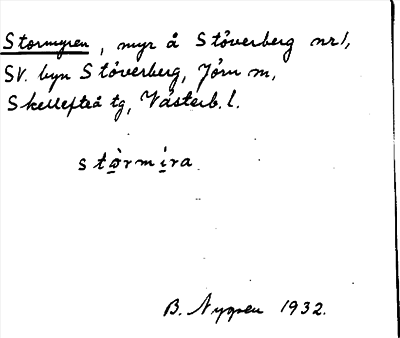 Stormyren, myr å Stöverberg nr 1,
SV. byn Stöverberg, Jörn sn,
Skellefteå tg, Västerb. l.
stọ̀rmịra
B. Nygren 1932.